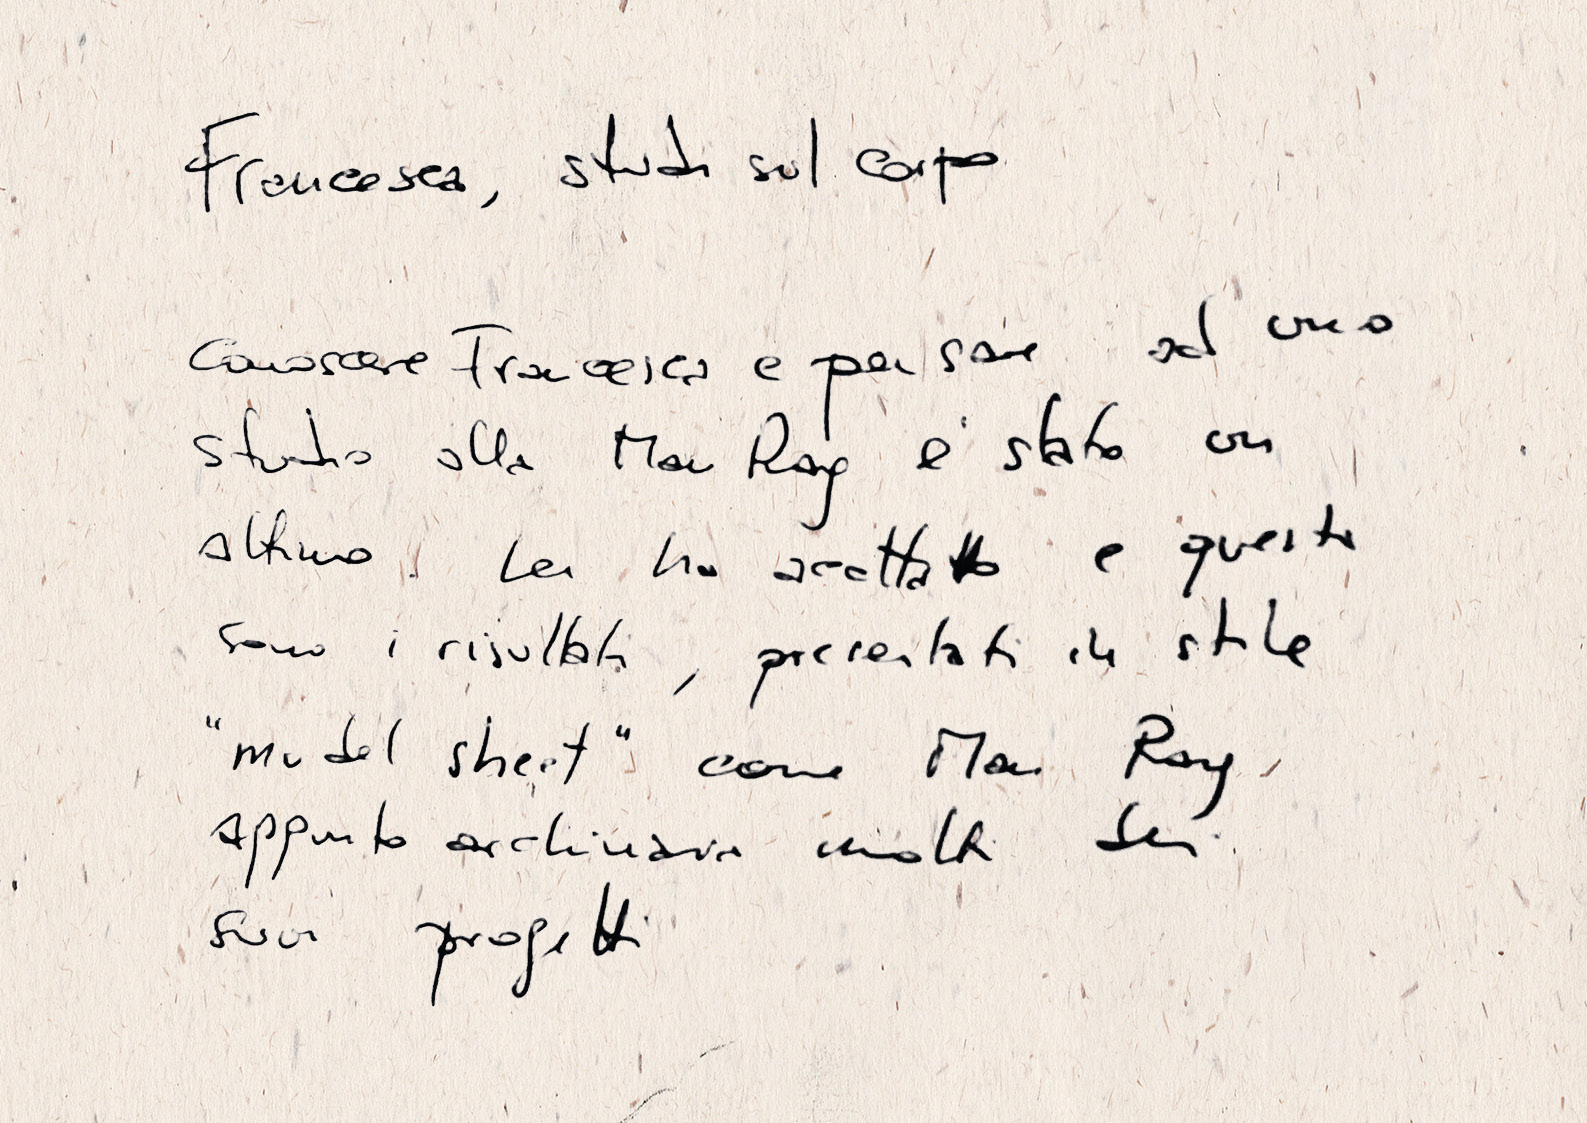 Francesca, studi sul corpo
Conoscere Francesca e pensare ad uno
studio alla Man Ray è stato un
attimo. Lei ha accettato e questi
sono i risultati, presentati in stile
"model sheet" come Man Ray
appunto archiviava molti dei
suoi progetti